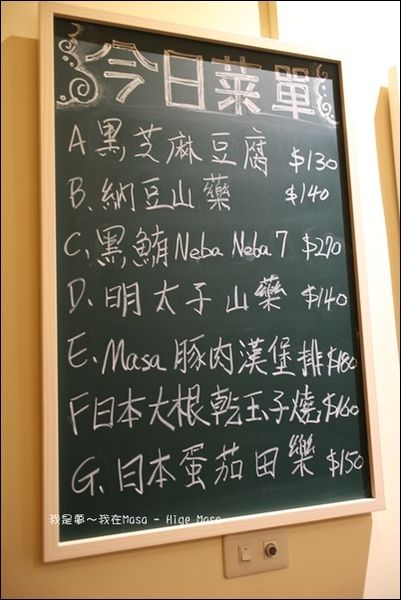 今日菜單
A黑芝麻豆腐 $130
B.納豆山藥 $140
C.黑鮪Neba Neba7 $270
D.明太子山藥 $140
E.Masa豚肉漢堡排$180
F日本大根乾玉子燒$160
G.日本蛋茄田樂 $150
我是夢～我在Masa - Hige Masa